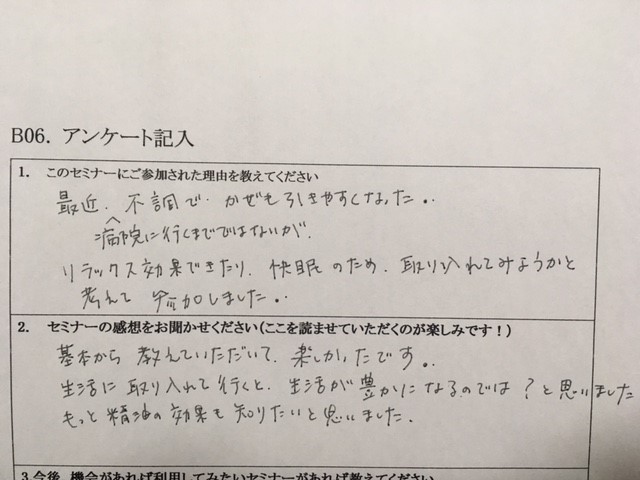 B06. アンケート記入
1. このセミナーにご参加された理由を教えてください
最近、不調で、かぜも引きやすくなった。
病院に行くまでではないが、
リラックス効果できたり、快眠のため、取り入れてみようかと
考えて参加しました。
2. セミナーの感想をお聞かせください(ここを読ませていただくのが楽しみです!)
基本から教えていただいて、楽しかったです。
生活に取り入れて行くと、生活が豊かになるのでは?と思いました
もっと精油の効果も知りたいと思いました。
3.今後、機会があれば利用してみたいセミナーがあれば教えてください